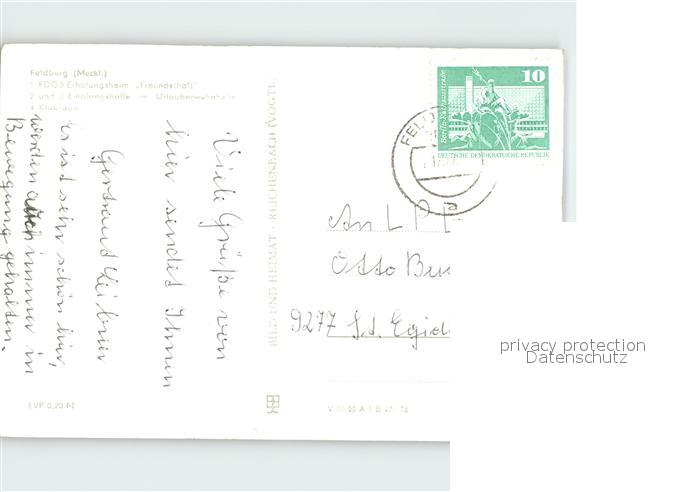 Feldberg (Meckl.)
1 FDGB-Erholungsheim „Freundschaft"
2 und 3 Empfangshalle im Urlauberwohnheim
4 Klubraum
Viele Grüße von
hier sendet Ihnen
Gertraud
Es ist sehr schön hier,
werden auch immer in
Bewegung gehalten.
EVP 0,20 M
BILD UND HEIMAT · REICHENBACH (VOGTL
V 11 50 A 1 B
10
Berlin-Rathausstraße
DEUTSCHE DEMOKRATISCHE REPUBLIK
FELD
a
An L P
Otto
9277 St. Egid
privacy protection
Datenschutz